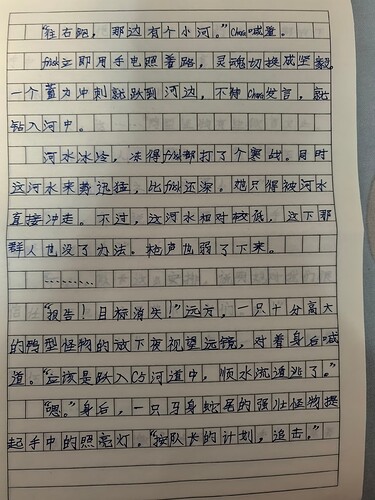 "往右跑，那边有个小河。"Chara喊道。
frisk立即用手电照着路，灵魂切换成坚毅。
一个蓄力冲刺就跃到河边，不待Chara发言，就
钻入河中。
河水冰冷，冻得frisk都打了个寒战。同时
这河水来势迅猛，比frisk还深。她只得被河水
直接冲走。不过，这河水相对较低，这下那
群人也没了办法。枪声也弱了下来。
………
"报告！目标消失！"远方，一只十分高大
的鸭型怪物的放下夜视望远镜，对着身后喊
道。"应该是跃入C5河道中，顺水流道逃了。"
"嗯。"身后，一只马身蛇尾的强壮怪物提
起手中的照亮灯。"按队长的计划，追击。"